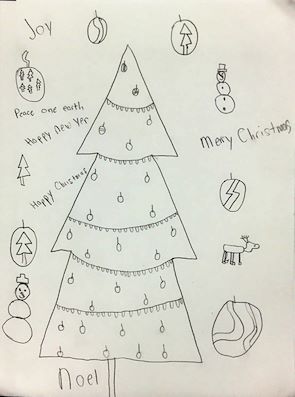 Joy
Peace one earth
Happy New Yer
Merry Christmas
Happy Christmas
Noel